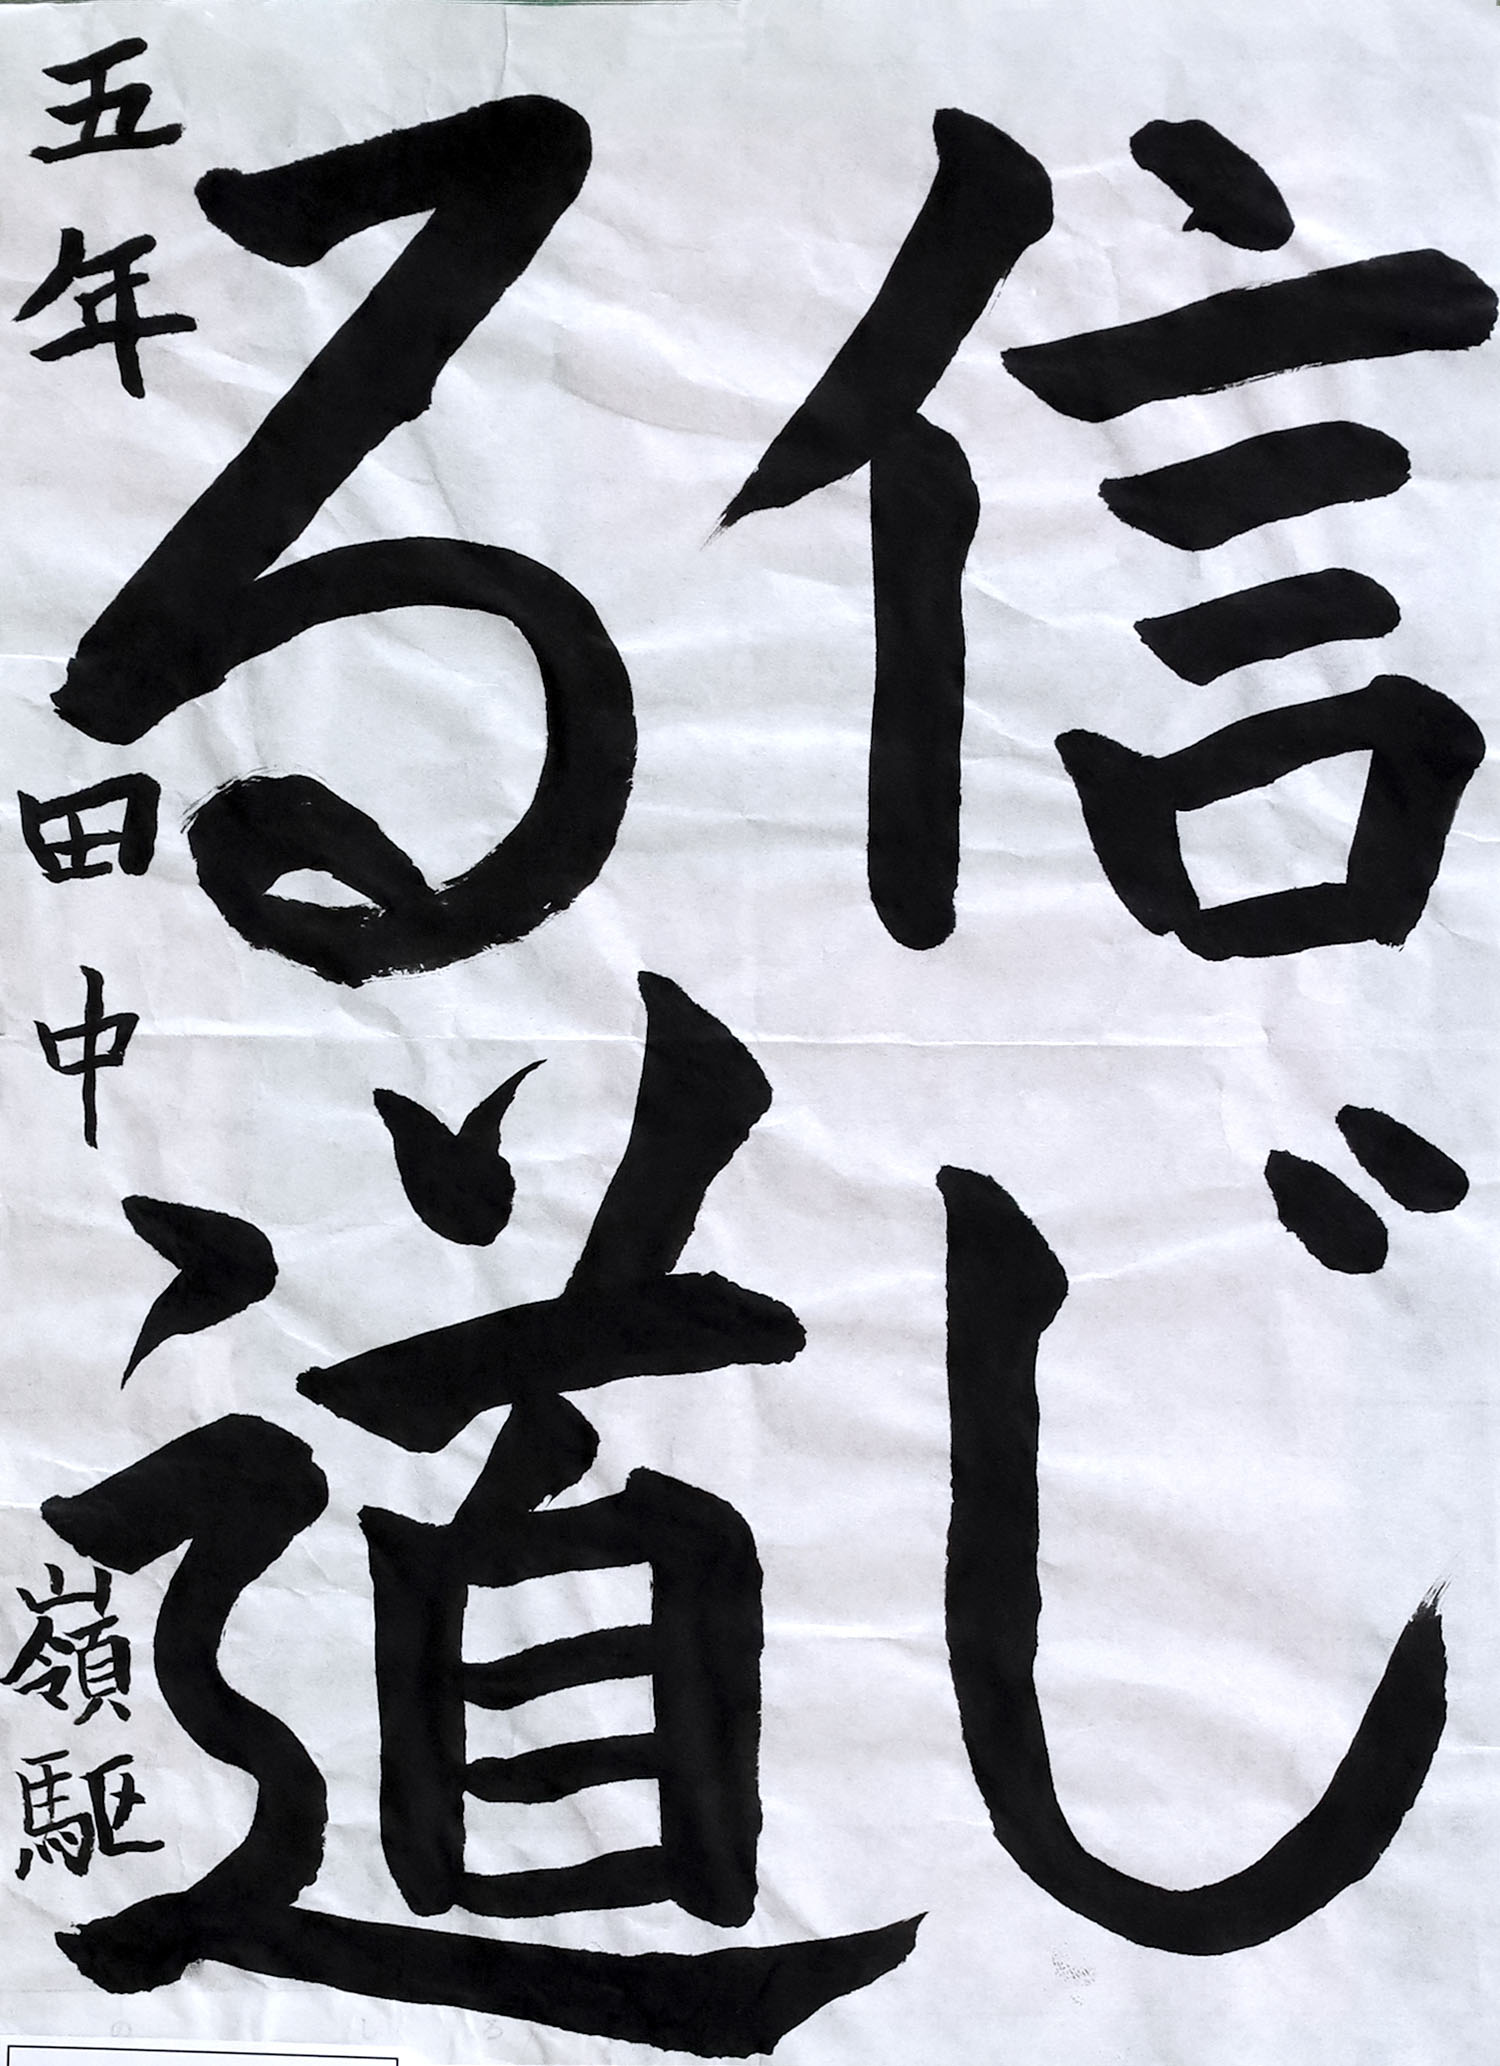 信じ
る道
五年 田中 嶺駆